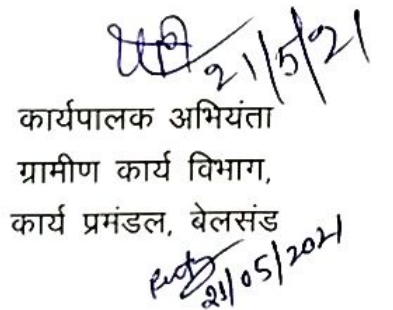 21/5/21
कार्यपालक अभियंता
ग्रामीण कार्य विभाग,
कार्य प्रमंडल, बेलसंड
21/05/2021